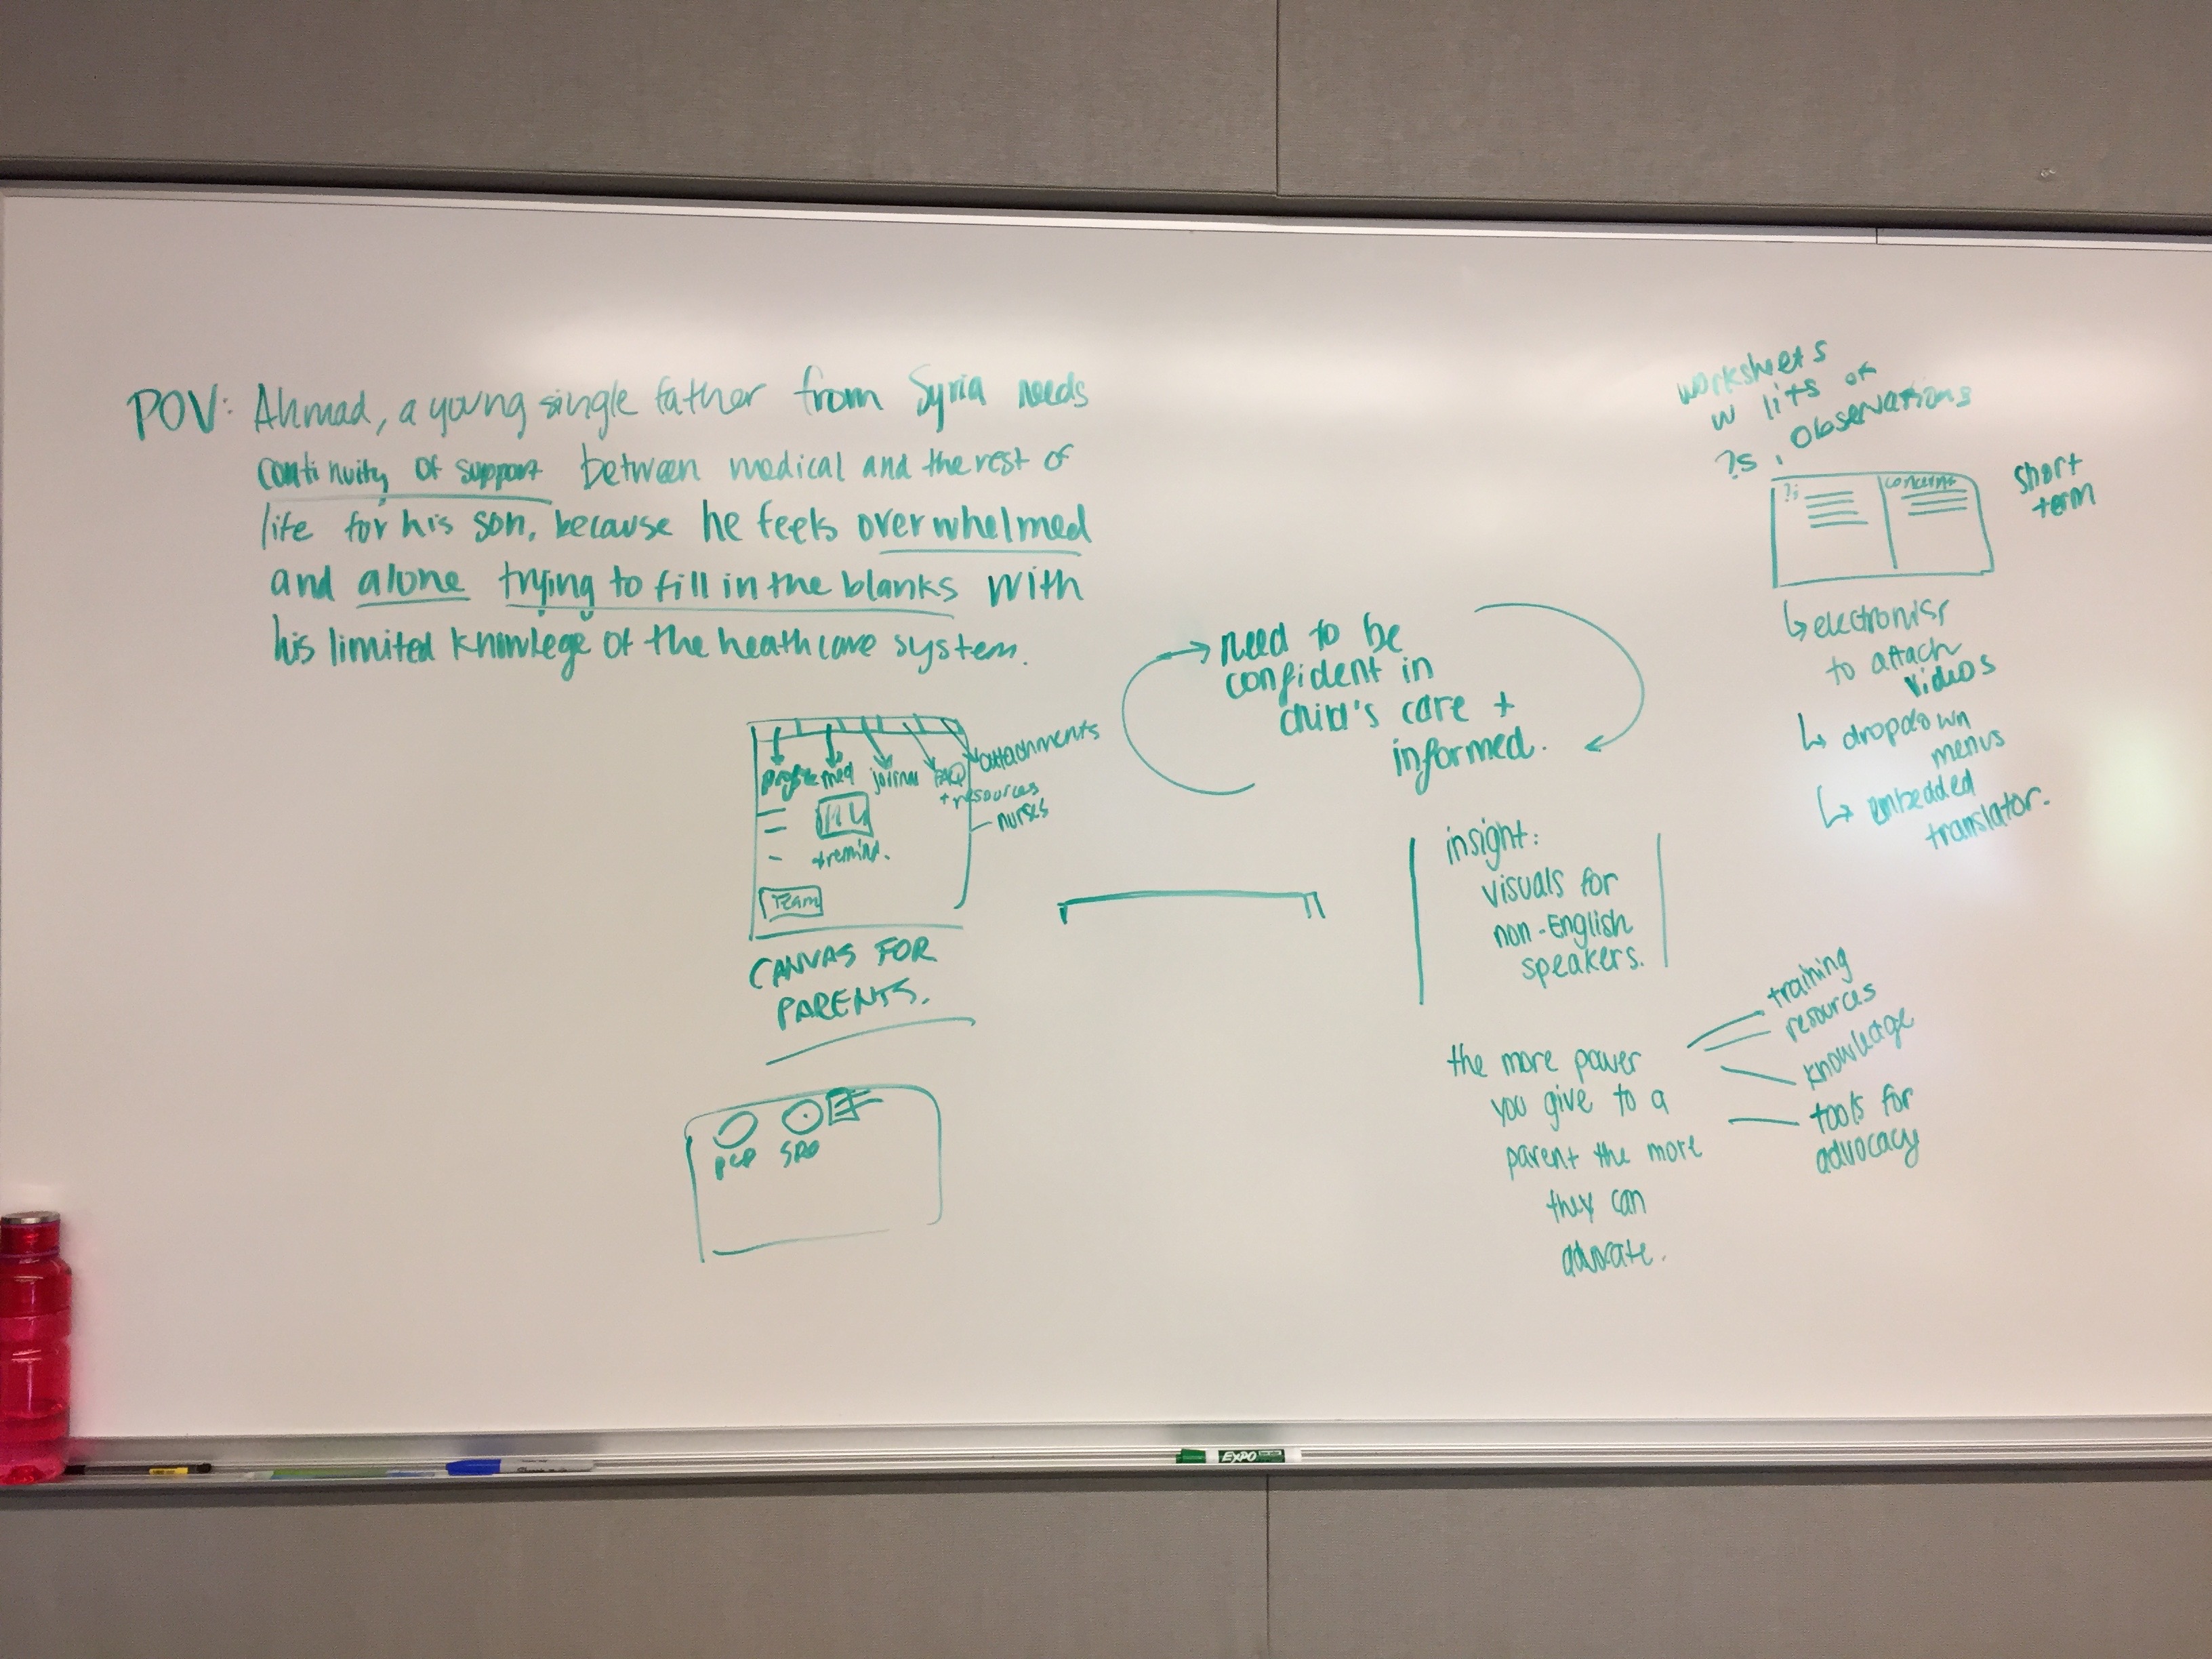 POV: Ahmad, a young single father from Syria needs
continuity of support between medical and the rest of
life for his son, because he feels overwhelmed
and alone trying to fill in the blanks with
his limited knowlege of the heathcare system.
profile med journal FAQ attachments
+ resources
nurses
+ remind.
Team
CANVAS FOR
PARENTS.
PCP
need to be
confident in
child's care +
informed.
insight:
visuals for
non-English
speakers.
the more power
you give to a
parent the more
they can
advocate.
training
resources
knowledge
tools for
advocacy
worksheets
w lits of
?s, observations
?s concerns
short
term
to attach
videos
dropdown
menus
embedded
translator.
EXPO